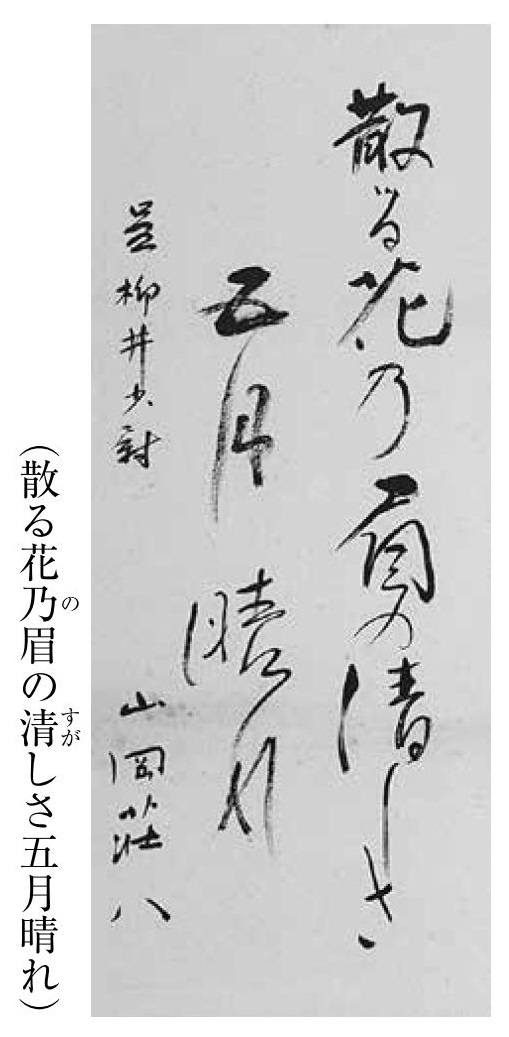 散る花乃眉の清しさ
五月晴れ
呈柳井少尉
山岡荘八
(散る花乃眉の清しさ五月晴れ)
の
すが